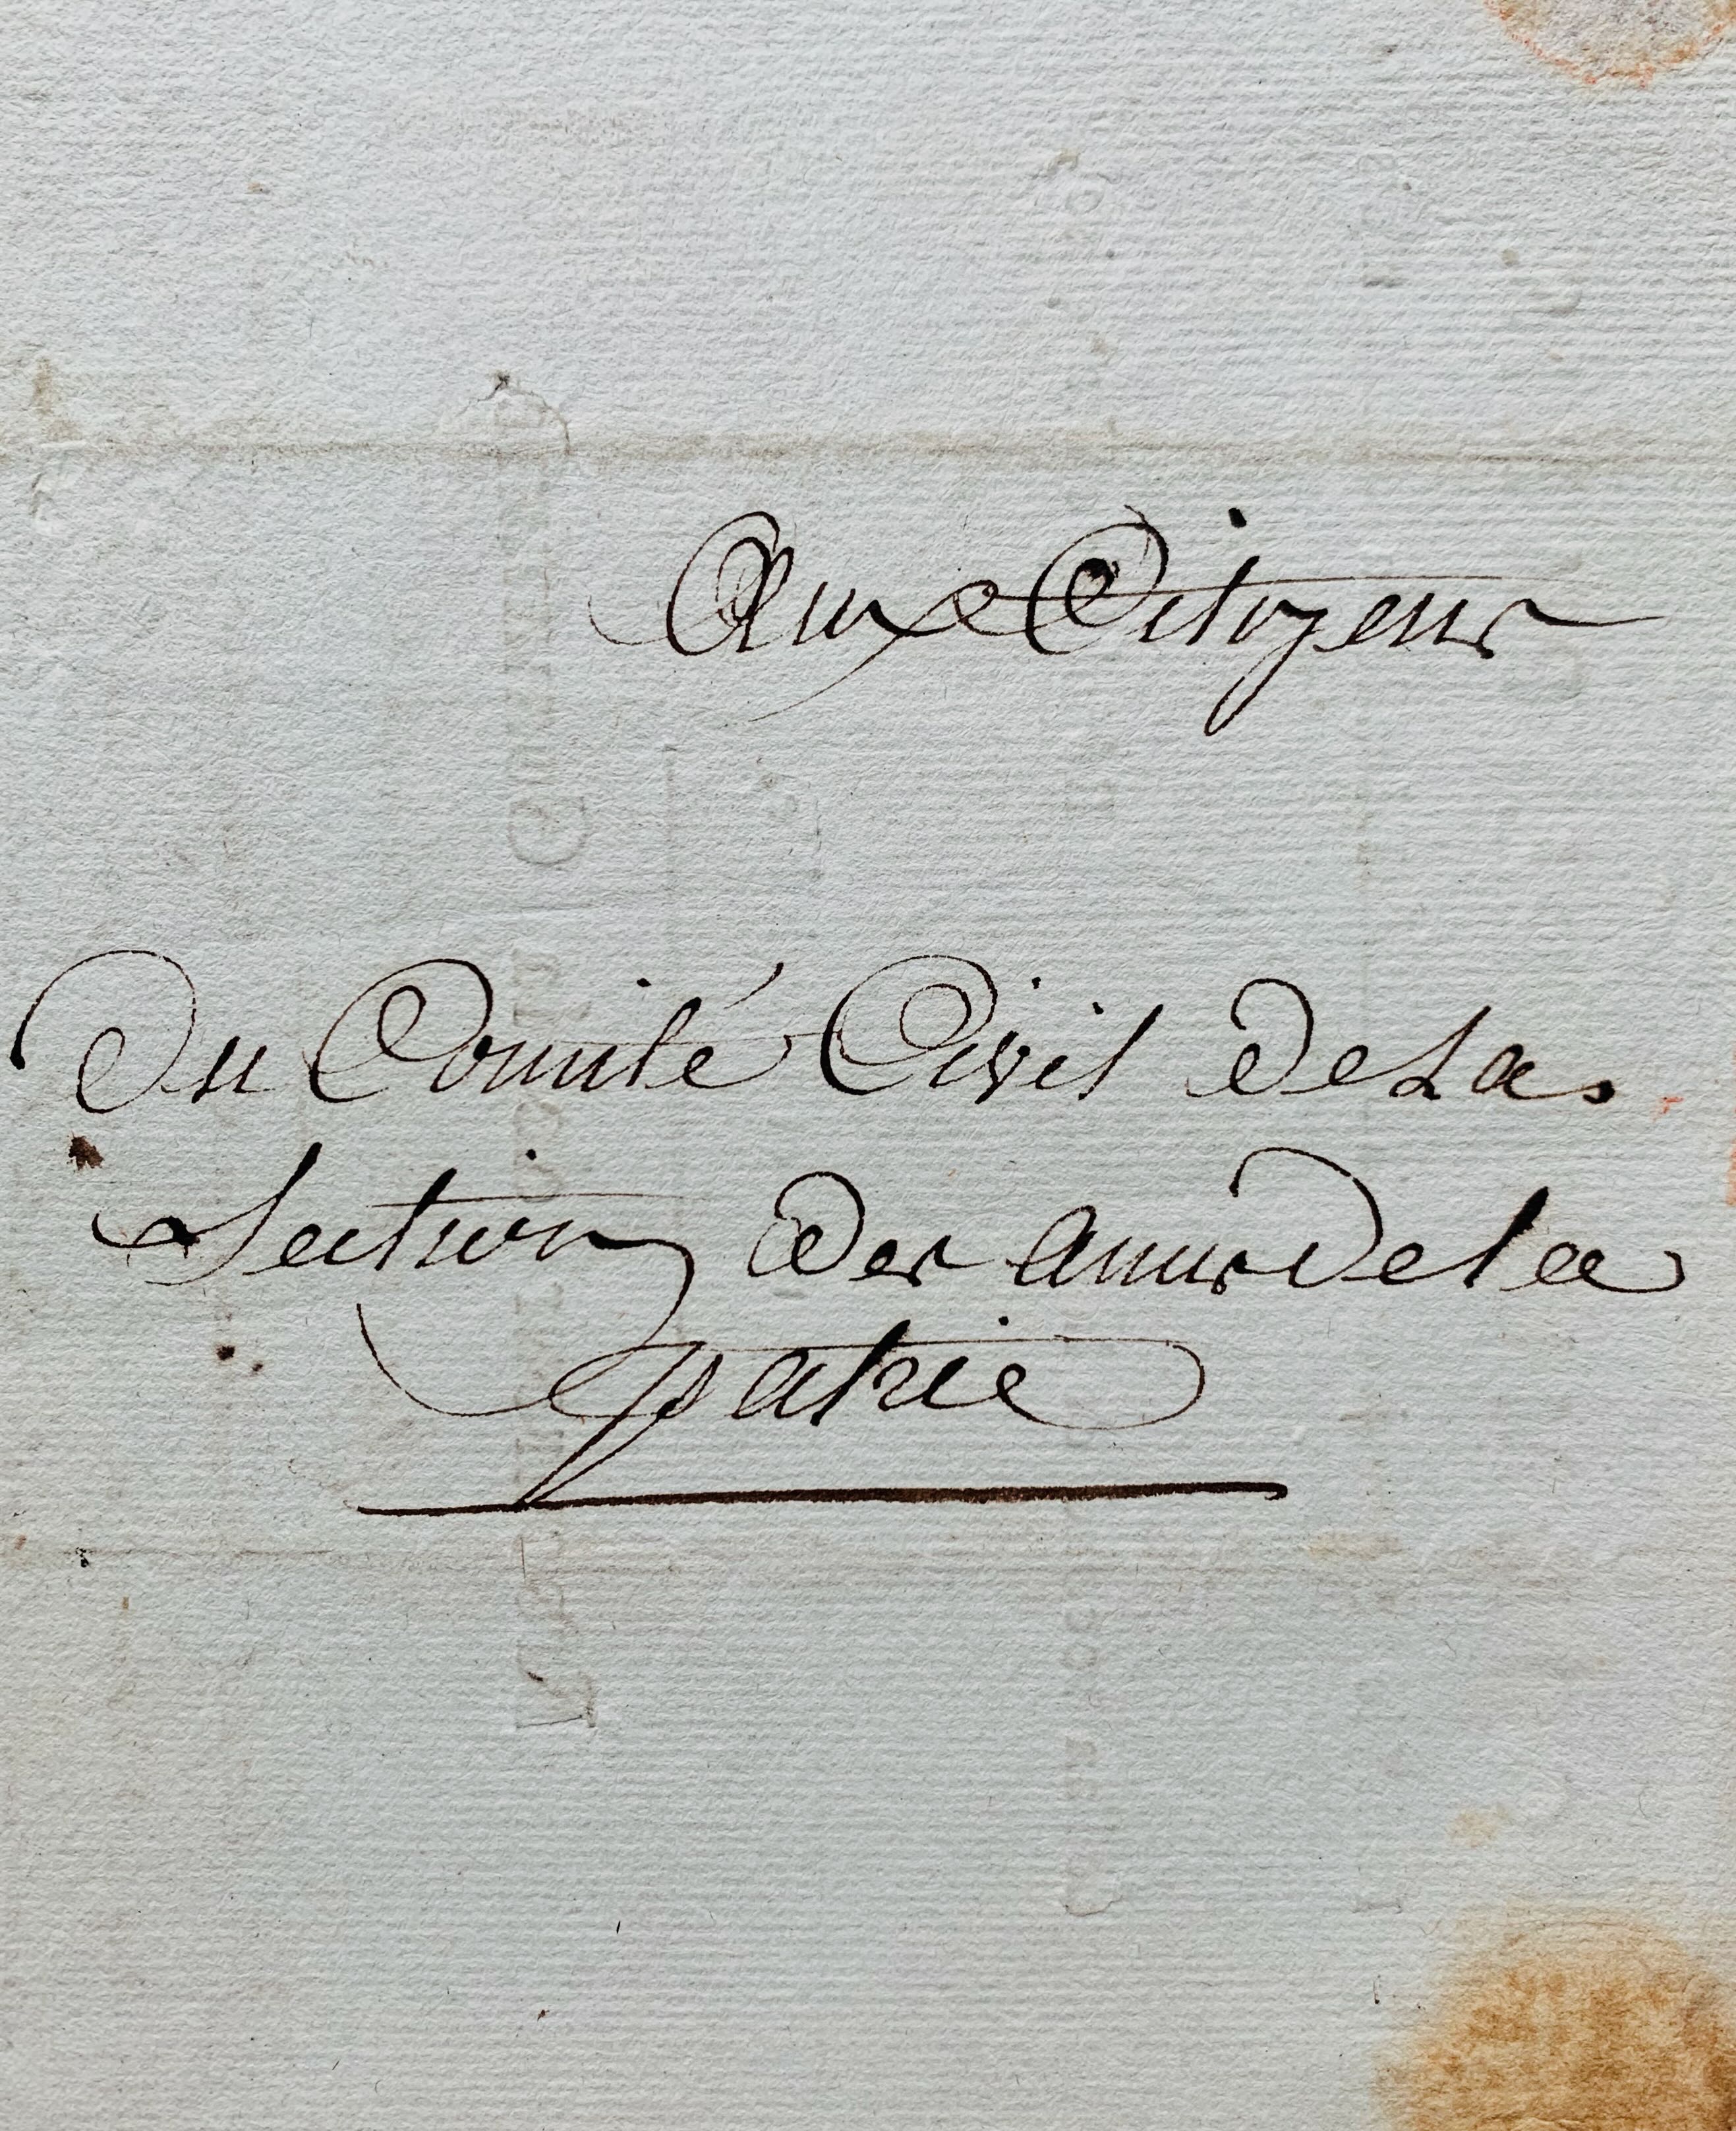 Aux Citoyens
Du Comité Civil de La
Section des amis de la
patrie